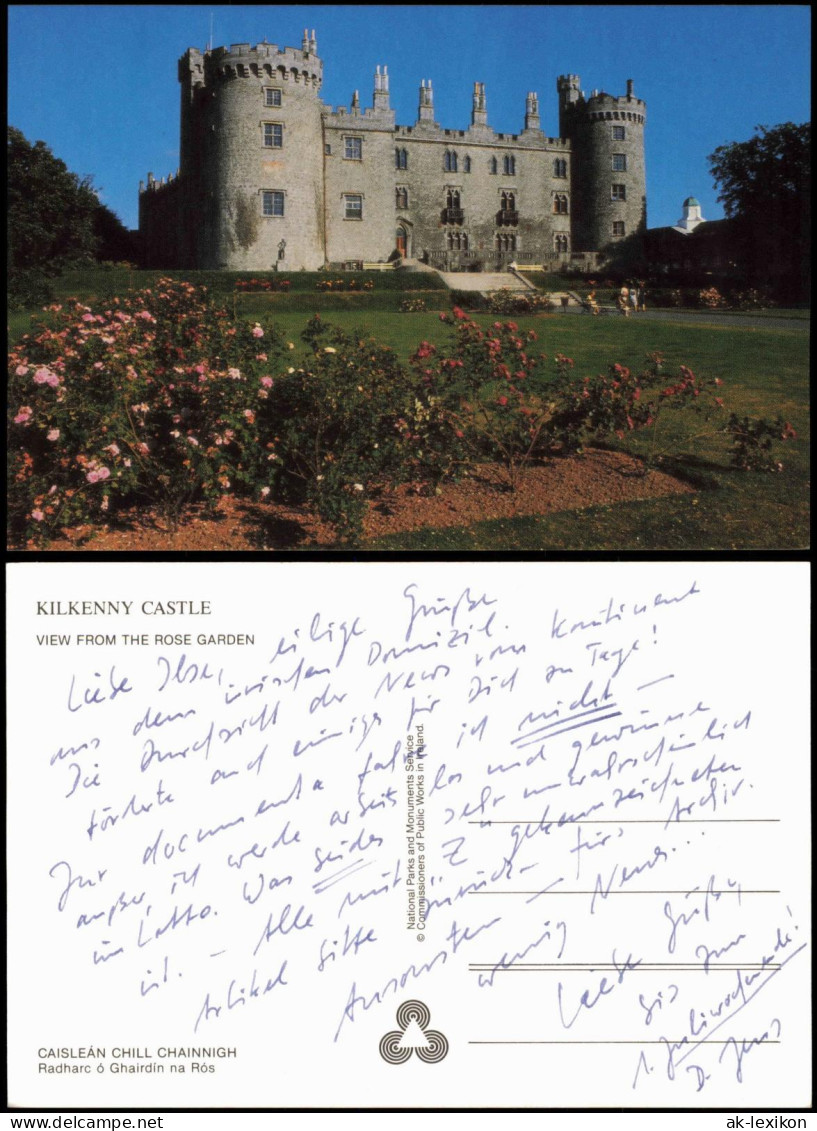 KILKENNY CASTLE
VIEW FROM THE ROSE GARDEN
Liebe Ilse, eilige Grüße
aus dem irischen Domizil.
Die Durchsicht der News vom Kontinent
förderte auch einiges für Dich zu Tage!
Zur documenta fahr ich nicht –
außer, ich werde arbeitslos und gewinne
im Lotto. Was beides sehr unwahrscheinlich
ist. – Alle mit "Z" gekennzeichneten
Artikel bitte zurück – fürs Archiv.
Ansonsten – wenig News...
Liebe Grüße,
bis zum
1. Juliwochende!
D. Jens
National Parks and Monuments Service
© Commissioners of Public Works in Ireland.
CAISLEÁN CHILL CHAINNIGH
Radharc ó Ghairdín na Rós
© ak-ansichtskarten.de
ak-lexikon